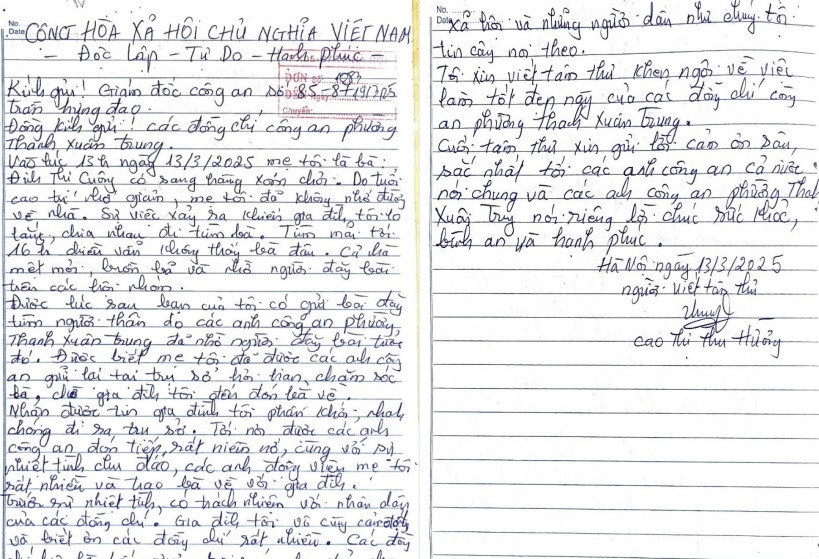 No.
Date
CỘNG HÒA XÃ HỘI CHỦ NGHĨA VIỆT NAM
- Độc Lập - Tự Do - Hạnh phúc -
ĐƠN số: 1087
ĐẾN Ngày: 19/3/25
Chuyển:
Kính gửi! Giám đốc công an số 85-87
trần hưng đạo.
Đồng kính gửi! các đồng chí công an phường
Thanh Xuân trung.
Vào lúc 13h ngày 13/3/2025 mẹ tôi là bà:
Đinh Thị Cuông có sang hàng xóm chơi. Do tuổi
cao trí nhớ giảm, mẹ tôi đã không nhớ được
về nhà. Sự việc xảy ra khiến gia đình tôi lo
lắng, chia nhau đi tìm bà. Tìm mãi tới
16h chiều vẫn không thấy bà đâu. Cả nhà
mệt mỏi, buồn bã và nhờ người đăng bài
trên các hội nhóm.
Được lúc sau bạn của tôi có gửi bài đăng
tìm người thân do các anh công an phường
Thanh Xuân trung đã nhờ người đăng bài trước
đó. Được biết mẹ tôi đã được các anh công
an giữ lại tại trụ sở hỏi han, chăm sóc
bà, chờ gia đình tôi đến đón bà về.
Nhận được tin gia đình tôi phấn khởi, nhanh
chóng đi ra trụ sở. Tới nơi được các anh
công an đón tiếp, rất niềm nở, cùng với sự
nhiệt tình chu đáo, các anh động viên mẹ tôi
rất nhiều và trao bà về với gia đình.
Trước sự nhiệt tình, có trách nhiệm với nhân dân
của các đồng chí. Gia đình tôi vô cùng cảm động
và biết ơn các đồng chí rất nhiều. Các đồng
No.
Date
xã hội và những người dân như chúng tôi
tin cậy noi theo.
Tôi xin viết tâm thư khen ngợi về việc
làm tốt đẹp này của các đồng chí công
an phường Thanh Xuân Trung.
Cuối tâm thư xin gửi lời cảm ơn sâu
sắc nhất tới các anh công an cả nước
nói chung và các anh công an phường Thanh
Xuân Trung nói riêng lời chúc sức khỏe,
bình an và hạnh phúc.
Hà Nội ngày 13/3/2025
người viết tâm thư
Cao Thị Thu Hường